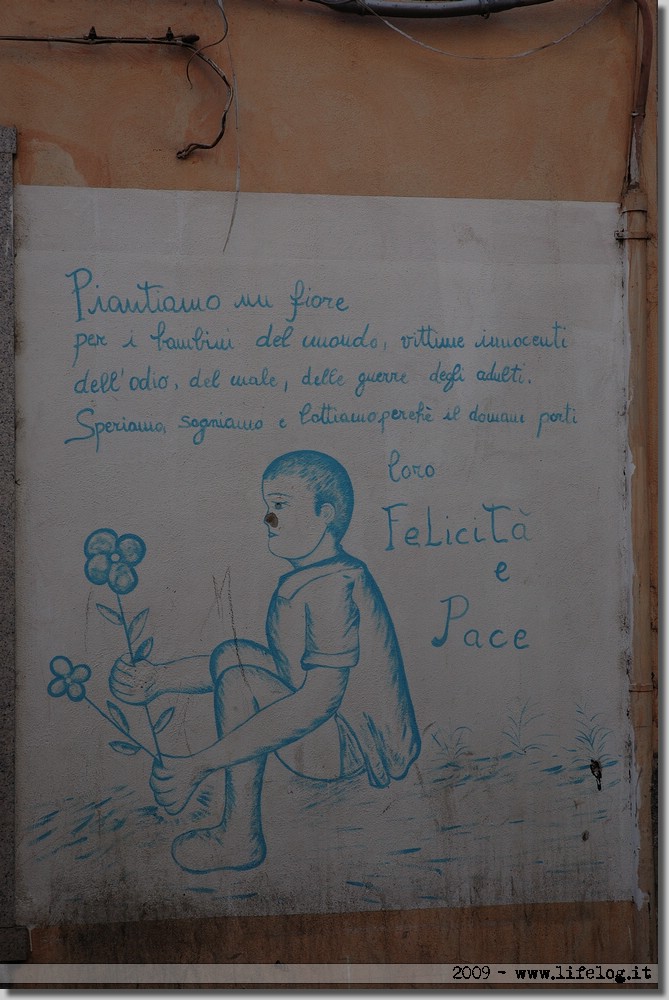 Piantiamo un fiore
per i bambini del mondo, vittime innocenti
dell'odio, del male, delle guerre degli adulti.
Speriamo, sogniamo e lottiamo, perchè il domani porti
loro
Felicità
e
Pace
2009 - www.lifelog.it